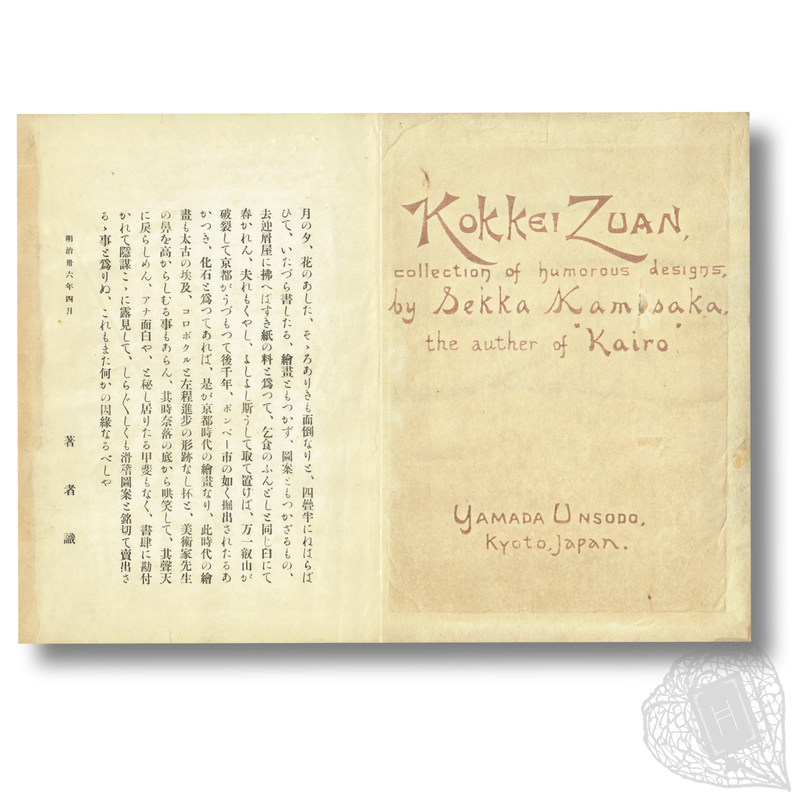 月の夕、花のあした、そゞろありきも面倒なりと、四疊半にねはらば
ひて、いたづら書したる、繪畫ともつかず、圖案ともつかざるもの、
去迚屑屋に拂へばすき紙の料と爲つて、乞食のふんどしと同じ臼にて
舂かれん、夫れもくやし、よしよし斯うして取て置けば、万一叡山が
破裂して京都がうづもつて後千年、ポンペー市の如く掘出されたるあ
かつき、化石と爲つてあれば、是が京都時代の繪畫なり、此時代の繪
畫も太古の埃及、コロボクルと左程進歩の形跡なし抔と、美術家先生
の鼻を高からしむる事もあらん、其時奈落の底から哄笑して、其聲天
に戻らしめん、アナ面白や、と秘し居りたる甲斐もなく、書肆に勘付
かれて隱謀こゝに露見して、しら〴〵しくも滑稽圖案と銘切て賣出さ
るゝ事と爲りぬ、これもまた何かの因縁なるべしや
著者識
明治卅六年四月
Kokkei Zuan,
collection of humorous designs,
by Sekka Kamisaka,
the auther of "Kairo"
Yamada Unsodo,
Kyoto, Japan.
H